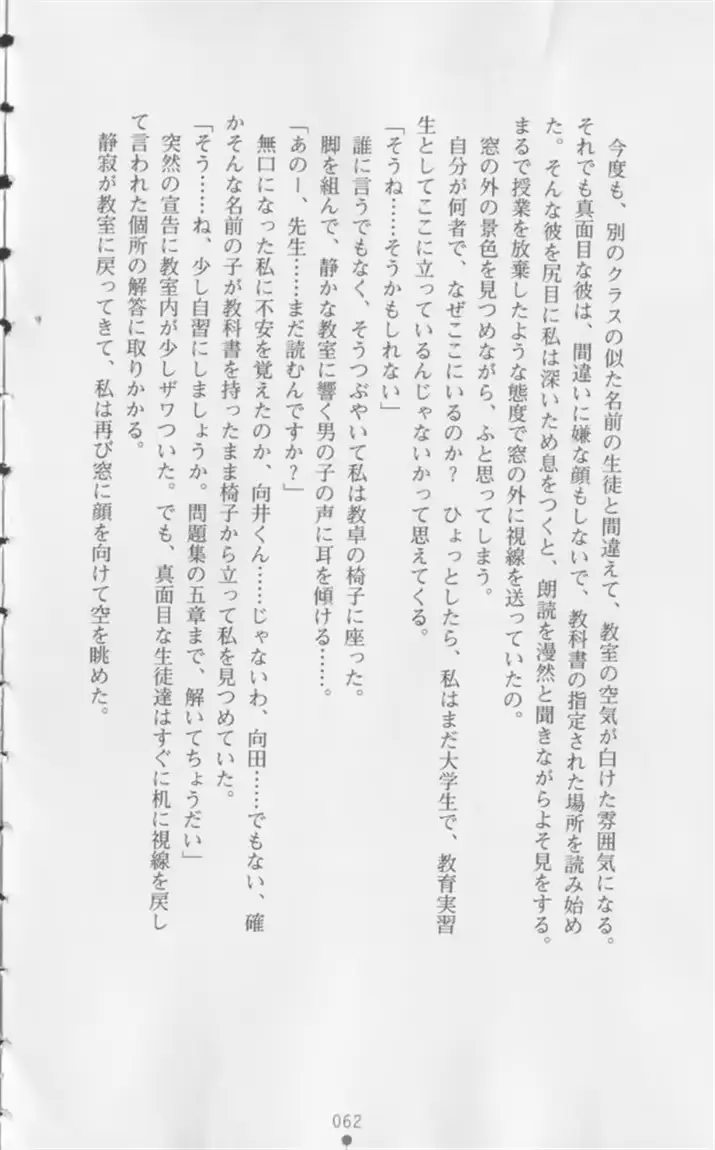 今度も、別のクラスの似た名前の生徒と間違えて、教室の空気が白けた雰囲気になる。
それでも真面目な彼は、間違いに嫌な顔もしないで、教科書の指定された場所を読み始め
た。そんな彼を尻目に私は深いため息をつくと、朗読を漫然と聞きながらよそ見をする。
まるで授業を放棄したような態度で窓の外に視線を送っていたの。
窓の外の景色を見つめながら、ふと思ってしまう。
自分が何者で、なぜここにいるのか？　ひょっとしたら、私はまだ大学生で、教育実習
生としてここに立っているんじゃないかって思えてくる。
「そうね……そうかもしれない」
誰に言うでもなく、そうつぶやいて私は教卓の椅子に座った。
脚を組んで、静かな教室に響く男の子の声に耳を傾ける……。
「あのー、先生……まだ読むんですか？」
無口になった私に不安を覚えたのか、向井くん……じゃないわ、向田……でもない、確
かそんな名前の子が教科書を持ったまま椅子から立って私を見つめていた。
「そう……ね、少し自習にしましょうか。問題集の五章まで、解いてちょうだい」
突然の宣告に教室内が少しザワついた。でも、真面目な生徒達はすぐに机に視線を戻し
て言われた個所の解答に取りかかる。
静寂が教室に戻ってきて、私は再び窓に顔を向けて空を眺めた。
062